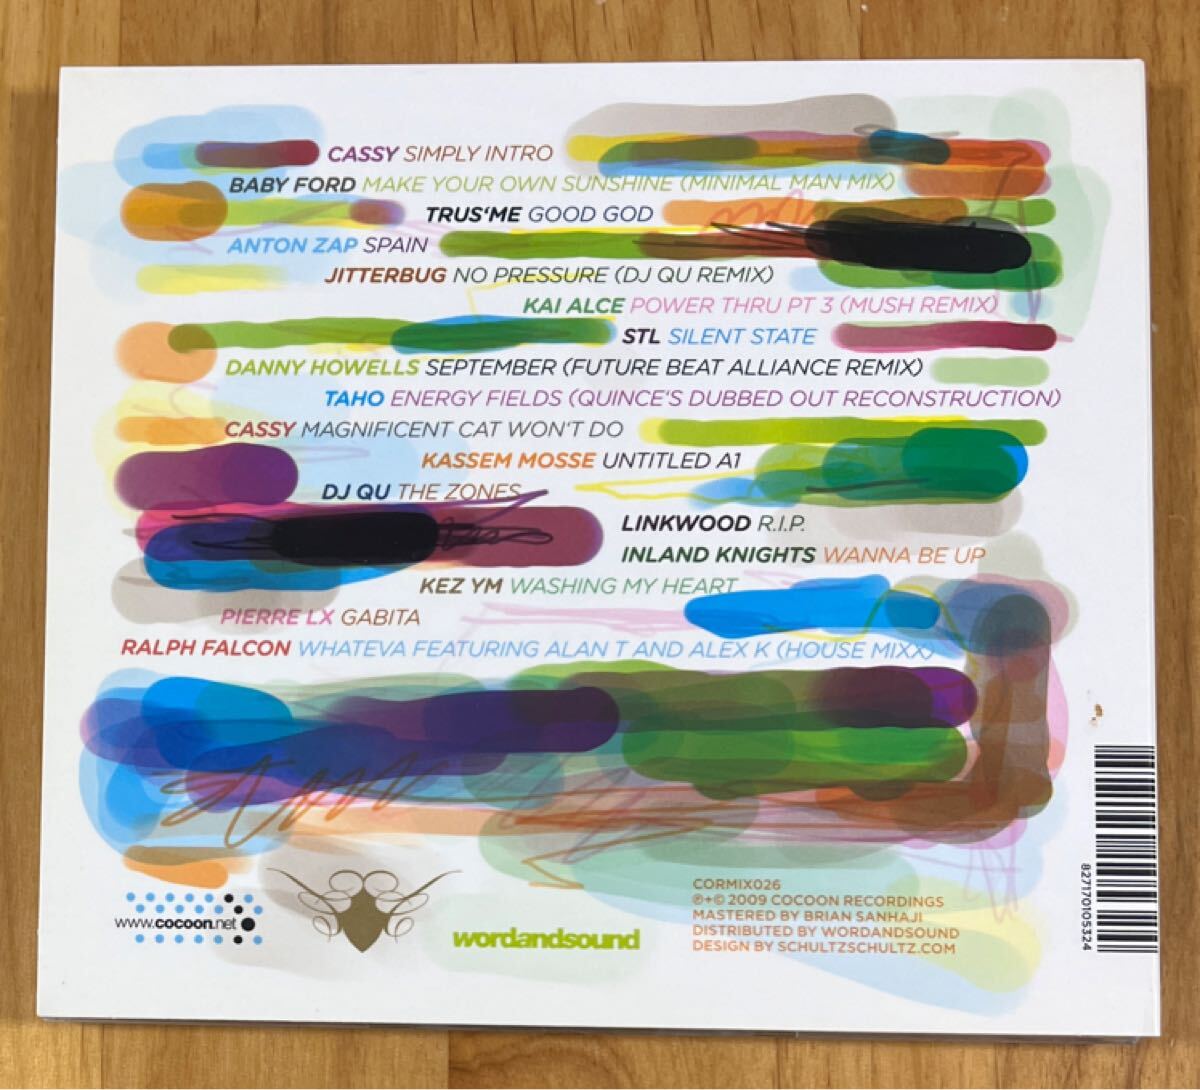 CASSY SIMPLY INTRO
BABY FORD MAKE YOUR OWN SUNSHINE (MINIMAL MAN MIX)
TRUS'ME GOOD GOD
ANTON ZAP SPAIN
JITTERBUG NO PRESSURE (DJ QU REMIX)
KAI ALCE POWER THRU PT 3 (MUSH REMIX)
STL SILENT STATE
DANNY HOWELLS SEPTEMBER (FUTURE BEAT ALLIANCE REMIX)
TAHO ENERGY FIELDS (QUINCE'S DUBBED OUT RECONSTRUCTION)
CASSY MAGNIFICENT CAT WON'T DO
KASSEM MOSSE UNTITLED A1
DJ QU THE ZONES
LINKWOOD R.I.P.
INLAND KNIGHTS WANNA BE UP
KEZ YM WASHING MY HEART
PIERRE LX GABITA
RALPH FALCON WHATEVA FEATURING ALAN T AND ALEX K (HOUSE MIXX)
www.cocoon.net
wordandsound
CORMIX026
℗+© 2009 COCOON RECORDINGS
MASTERED BY BRIAN SANHAJI
DISTRIBUTED BY WORDANDSOUND
DESIGN BY SCHULTZSCHULTZ.COM
827170105324